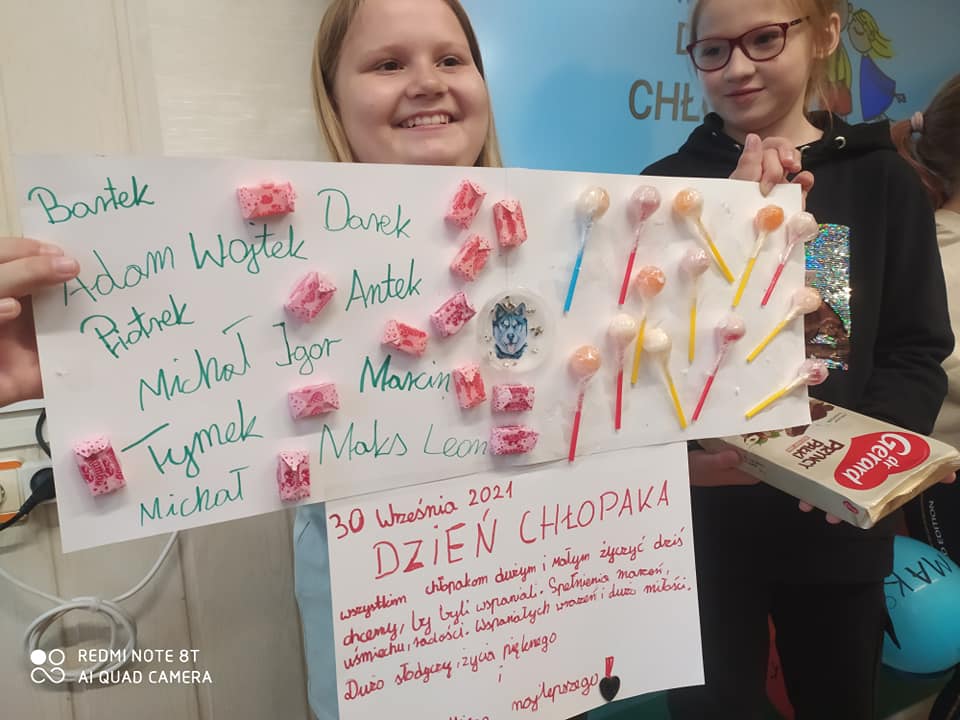 CHŁO
Bartek
Darek
Adam Wojtek
Antek
Piotrek
Michał Igor
Marcin
Tymek
Maks Leon
Michał
30 Września 2021
DZIEŃ CHŁOPAKA
wszystkim chłopakom dużym i małym życzyć dziś
chcemy, by byli wspaniali. Spełnienia marzeń,
uśmiechu, radości. Wspaniałych wrażeń i dużo miłości.
Dużo słodyczy, życia pięknego
i
najlepszego
dr
Gerard
PRYNCYPAŁKI
EDITION
MAKS
REDMI NOTE 8T
AI QUAD CAMERA